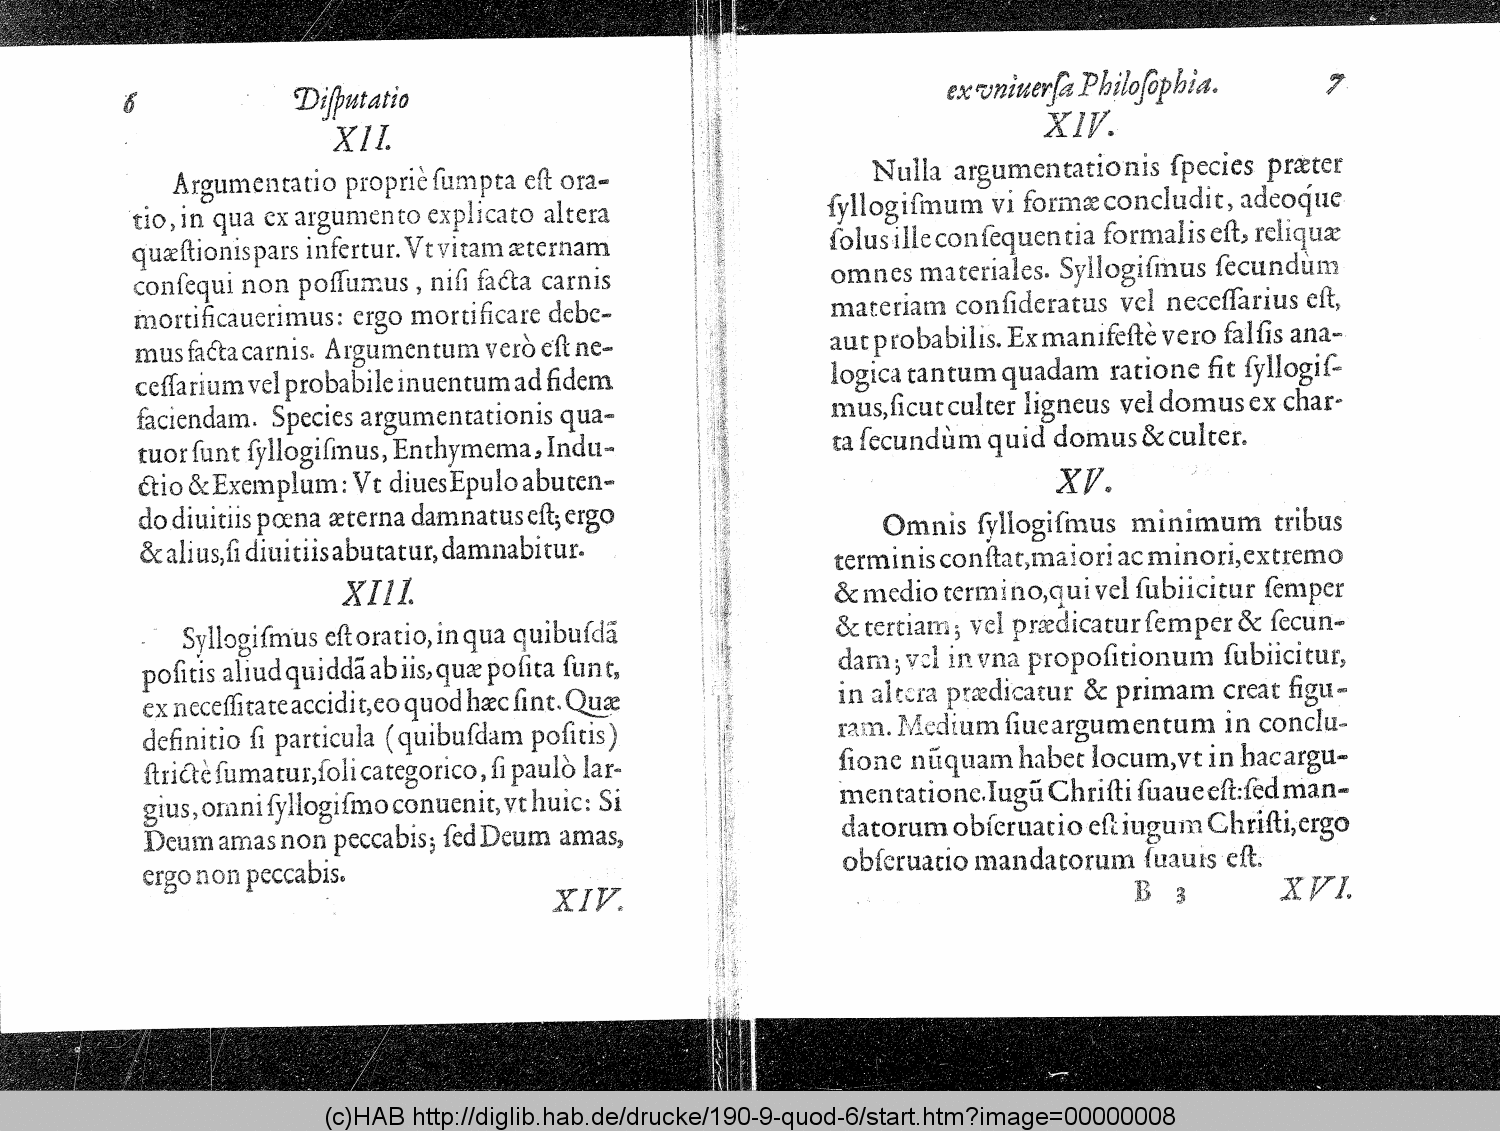 6 Diſputatio
XII.
Argumentatio propriè ſumpta eſt ora-
tio, in qua ex argumento explicato altera
quæſtionis pars infertur. Vt vitam æternam
conſequi non poſſumus, niſi facta carnis
mortificauerimus: ergo mortificare debe-
mus facta carnis. Argumentum verò eſt ne-
ceſſarium vel probabile inuentum ad fidem
faciendam. Species argumentationis qua-
tuor ſunt ſyllogiſmus, Enthymema, Indu-
ctio & Exemplum: Vt diues Epulo abuten-
do diuitiis pœna æterna damnatus eſt; ergo
& alius, ſi diuitiis abutatur, damnabitur.
XIII.
Syllogiſmus eſt oratio, in qua quibuſdã
poſitis aliud quiddã ab iis, quæ poſita ſunt,
ex neceſſitate accidit, eo quod hæc ſint. Quæ
definitio ſi particula (quibuſdam poſitis)
ſtrictè ſumatur, ſoli categorico, ſi paulò lar-
gius, omni ſyllogiſmo conuenit, vt huic: Si
Deum amas non peccabis; ſed Deum amas,
ergo non peccabis.
XIV.
ex vniuerſa Philoſophia. 7
XIV.
Nulla argumentationis ſpecies præter
ſyllogiſmum vi formæ concludit, adeoq́ue
ſolus ille conſequentia formalis eſt, reliquæ
omnes materiales. Syllogiſmus ſecundùm
materiam conſideratus vel neceſſarius eſt,
aut probabilis. Ex manifeſtè vero falſis ana-
logica tantum quadam ratione fit ſyllogiſ-
mus, ſicut culter ligneus vel domus ex char-
ta ſecundùm quid domus & culter.
XV.
Omnis ſyllogiſmus minimum tribus
terminis conſtat, maiori ac minori, extremo
& medio termino, qui vel ſubiicitur ſemper
& tertiam; vel prædicatur ſemper & ſecun-
dam; vel in vna propoſitionum ſubiicitur,
in altera prædicatur & primam creat figu-
ram. Medium ſiue argumentum in conclu-
ſione nũquam habet locum, vt in hac argu-
mentatione. Iugũ Chriſti ſuaue eſt: ſed man-
datorum obſeruatio eſt iugum Chriſti, ergo
obſeruatio mandatorum ſuauis eſt.
B 3 XVI.
(c)HAB http://diglib.hab.de/drucke/190-9-quod-6/start.htm?image=00000008